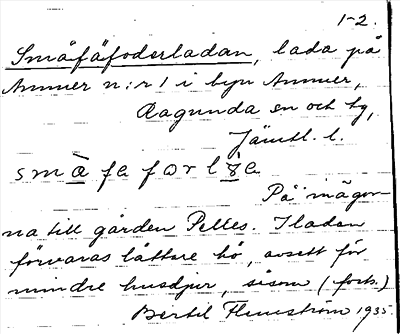 1-2.
Småfäfoderladan, lada på
Ammer n:r 1 i byn Ammer,
Ragunda sn och tg,
Jämtl. l.
På ägor-
na till gården Pelles. I ladan
förvaras lättare hö, avsett för
mindre husdjur, såsom (forts.)
Bertil Flemström 1935.